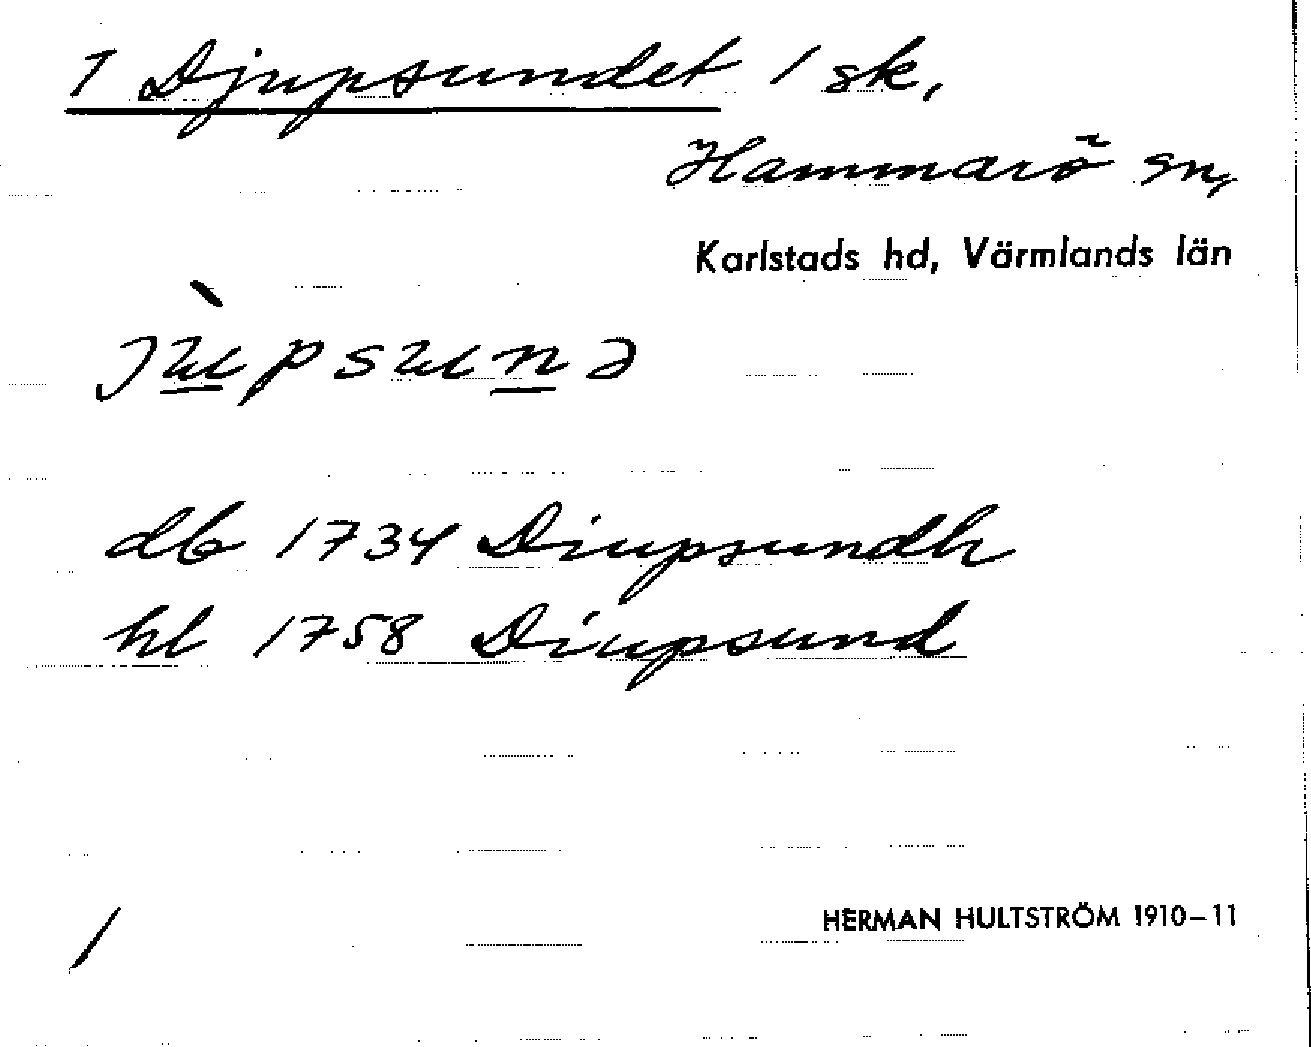 1 Djupsundet 1 sk,
Hammarö sn,
Karlstads hd, Värmlands län
db 1734 Diupsundh
hl 1758 Diupsund
/
HERMAN HULTSTRÖM 1910–11